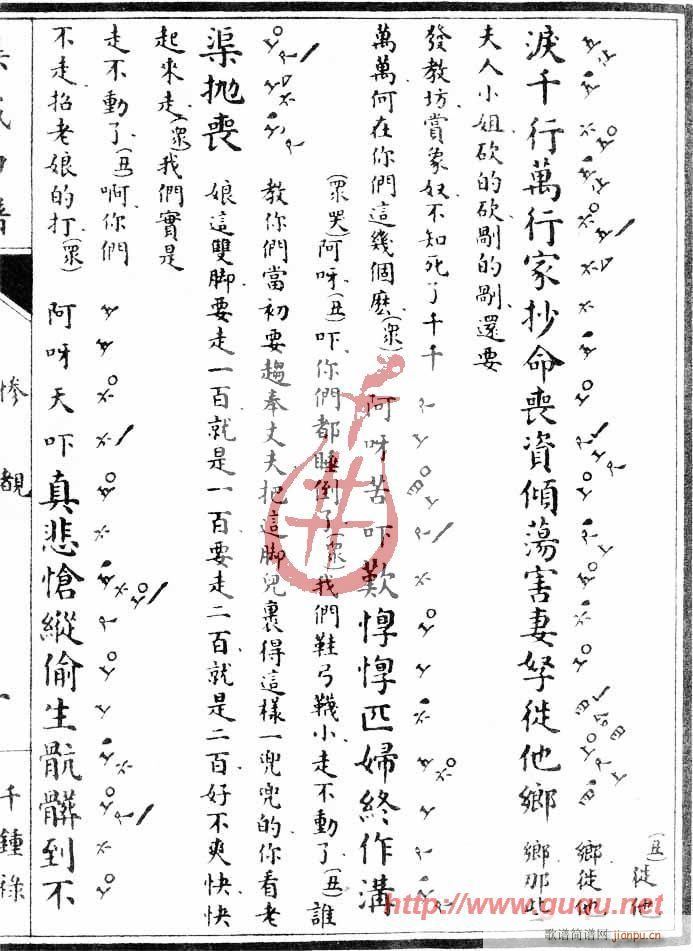 淚千行萬行家抄命喪資傾蕩害妻孥徙他鄉
(丑)徙他
鄉徙他
鄉那些
夫人小姐砍的砍剮的剮還要
發教坊賞象奴不知死了千千
萬萬何在你們這幾個麽(衆)阿呀苦吓歎惸惸匹婦終作溝
(衆哭)阿呀(丑)吓你們都睡倒了(衆)我們鞋弓韈小走不動了(丑)誰
教你們當初要趨奉丈夫把這脚兒裹得這樣一兜兜的你看老
渠抛喪
娘這雙脚要走一百就是一百要走二百就是二百好不爽快快
起來走(衆)我們實是
走不動了(丑)啊你們
不走招老娘的打(衆)阿呀天吓真悲愴縱偷生骯髒到不
慘覩
一
千鍾祿
http://www.guqu.net
歌谱简谱网
jianpu.cn